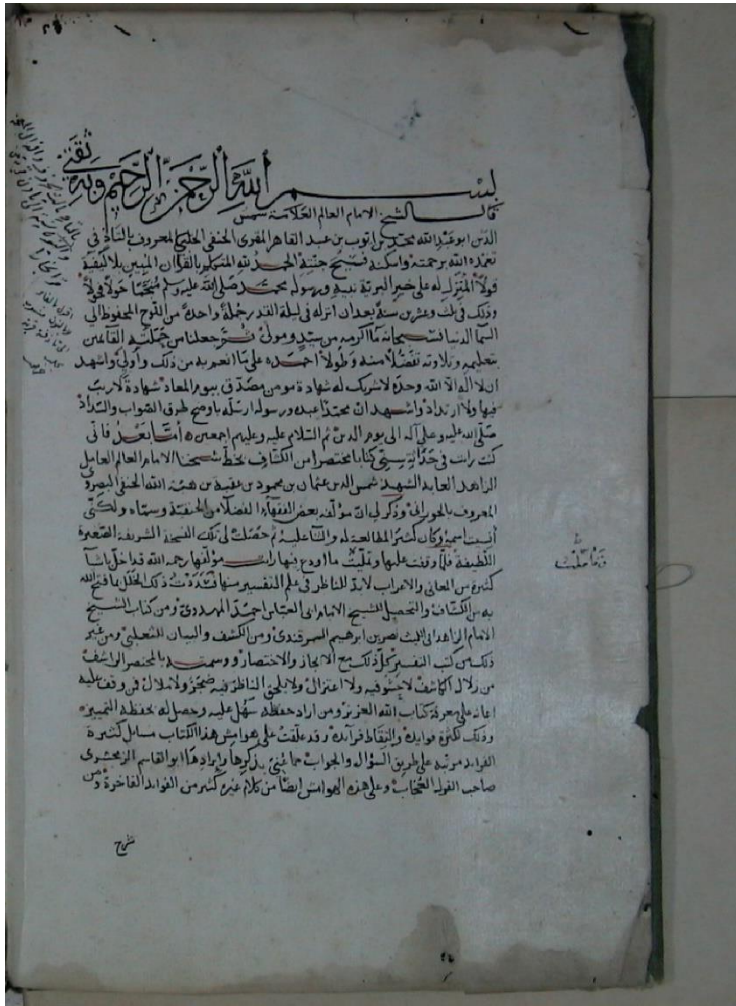 بسم الله الرحمن الرحيم وبه ثقتي
قال الشيخ الامام العالم العلامة شمس
الدين ابو عبد الله محمد بن ايوب بن عبد القاهر المقرى الحنفي الحلبي المعروف بالتاذفي
تغمده الله برحمته واسكنه فسيح جنته الحمد لله المتكلم بالقرآن المبين بلا كيفية
قولاً المنزل له على خير البرية نبيه ورسوله محمد صلى الله عليه وسلم منجما حولاً فحولاً
وذلك في ثلث وعشرين سنة بعد ان انزله في ليلة القدر جملة واحدة من اللوح المحفوظ الى
السما الدنيا فسبحانه ما اكرمه من سيد ومولى ثم جعلنا من حملته القائمين
بتعليمه وتلاوته تفضلا منه وطولاً احمده على ما انعم به من ذلك وأولى واشهد
ان لا اله الا الله وحده لا شريك له شهادة مومن مصدق بيوم المعاد شهادة لا ريب
فيها ولا ارتداد واشهد ان محمدا عبده ورسوله ارسله باوضح طرق الصواب والسداد
صلى الله عليه وعلى آله الى يوم الدين ثم السلام عليه وعليهم اجمعين أما بعد فانى
كنت رايت في حداثة سني كتابا مختصرا من الكشاف بخط شيخنا الامام العالم العامل
الزاهد العابد الشهيد شمس الدين عثمان بن محمود بن عقبة بن هبة الله الحنفي البصروي
المعروف بالحوراني وذكر لي ان مؤلفه بعض الفقهاء الفضلا من الحنفية وسماه ولكني
أنسيت اسمه وكان كثير المطالعة له والثنا عليه ثم حصلت لى تلك النسخة الشريفة الصغيرة
اللطيفة فلما وقفت عليها وتمليت ما اودع فيها رايت مؤلفها رحمه الله قد اخل باشيآ
كثيرة من المعاني والاعراب لا بد للناظر في علم التفسير منها فسددت ذلك الخلل بما فتح الله
به من الكشاف والتحصيل للشيخ الامام ابى العباس احمد المهدوى ومن كتاب الشيخ
الامام الزاهد ابى الليث نصر بن ابرهيم السمرقندي ومن الكشف والبيان للثعلبي ومن غير
ذلك من كتب التفسير كل ذلك مع الايجاز والاختصار ووسمته بالمختصر الراشف
من زلال الكاشف لا حشو فيه ولا اعتزال ولا يلحق الناظر فيه ضجر ولا ملال فمن وقف عليه
اعانه على معرفة كتاب الله العزيز ومن اراد حفظه سهل عليه وحصل له بحفظه التمييز
وذلك لكثرة فوايده والتقاط فرايده وقد علقت على هوامش هذا الكتاب مسايل كثيرة
الفوايد مرتبة على طريق السؤال والجواب مما عني بذكرها وايرادها ابو القاسم الزمخشرى
صاحب القول العجاب وعلى هذه الهوامش ايضا من كلام غيره كثير من الفوايد الفاخرة ومن